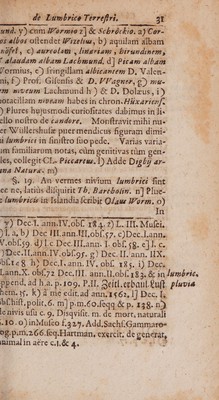 de Lumbrico Terrestri. 31
mund. y) cum Wormio z) & Schröckio. a) Cor-
albos ostendet Wizelius, b) aquilam albam
c) aureolum, linariam, hirundinem,
alaudam albam Lachmund. d) Picam albam
Wormius, e) fringillam albicantem D. Valen-
ni, f) Prof. Gisensis & D. VVagner, g) mu-
rem niveum Lachmund h) & D. Dolæus, i)
notatilium novam habes in chron.
k) Plures hujusmodi curiositates dabimus in li-
bello nostro de candore. Monstravit mihi nu-
per Wüllershusæ puer mendicus figuram dimi-
i lumbrici in sinistro suo pede. Varias varia-
um familiarum notas, cum genitivas tum gen-
les, collegit Cl. Piccartus. l) Adde Digbij ar-
na Natura. m)
§. 19. An vermes nivium lumbrici sint
nec ne, latius disquirit Th. Bartholin. n) Plu-
lumbricis in Islandia scribit Olaus Worm. o)
In
y) Dec. I. ann. IV. obs. 184. z) L. III. Musei,
a) b) Dec. III. ann. III. obs. 57. c) Dec. I. ann.
V. obs. 59. d) l. c Dec. III. ann. I. obs. 58. e] l. c.
Dec. II. ann. IV. obs. 95. g) Dec. II. ann. IX.
obs. 168 h) Dec. I. ann. IV. obs. 195. i) Dec.
I. ann. X. obs. 72 Dec. III. ann. II. obs. 183. & in lumbric.
append. ad h. a. p. 109. P. II. Zeitl. erbaul. Lust pluvia
k) à mê edit. ad ann. 1562. l] Dec. I.
hist. polit. 6. m] p. m. 60. seqq & p. m. 178. n]
de nivis usu c. 9. Disquisit. m. de mort. naturali
10. o) in Museo f. 327. Add. Sachs. Gammaro-
log. p. m. 266. seq. Hartman. exercit. de generat.
animal in aëre c. 1. & 4.